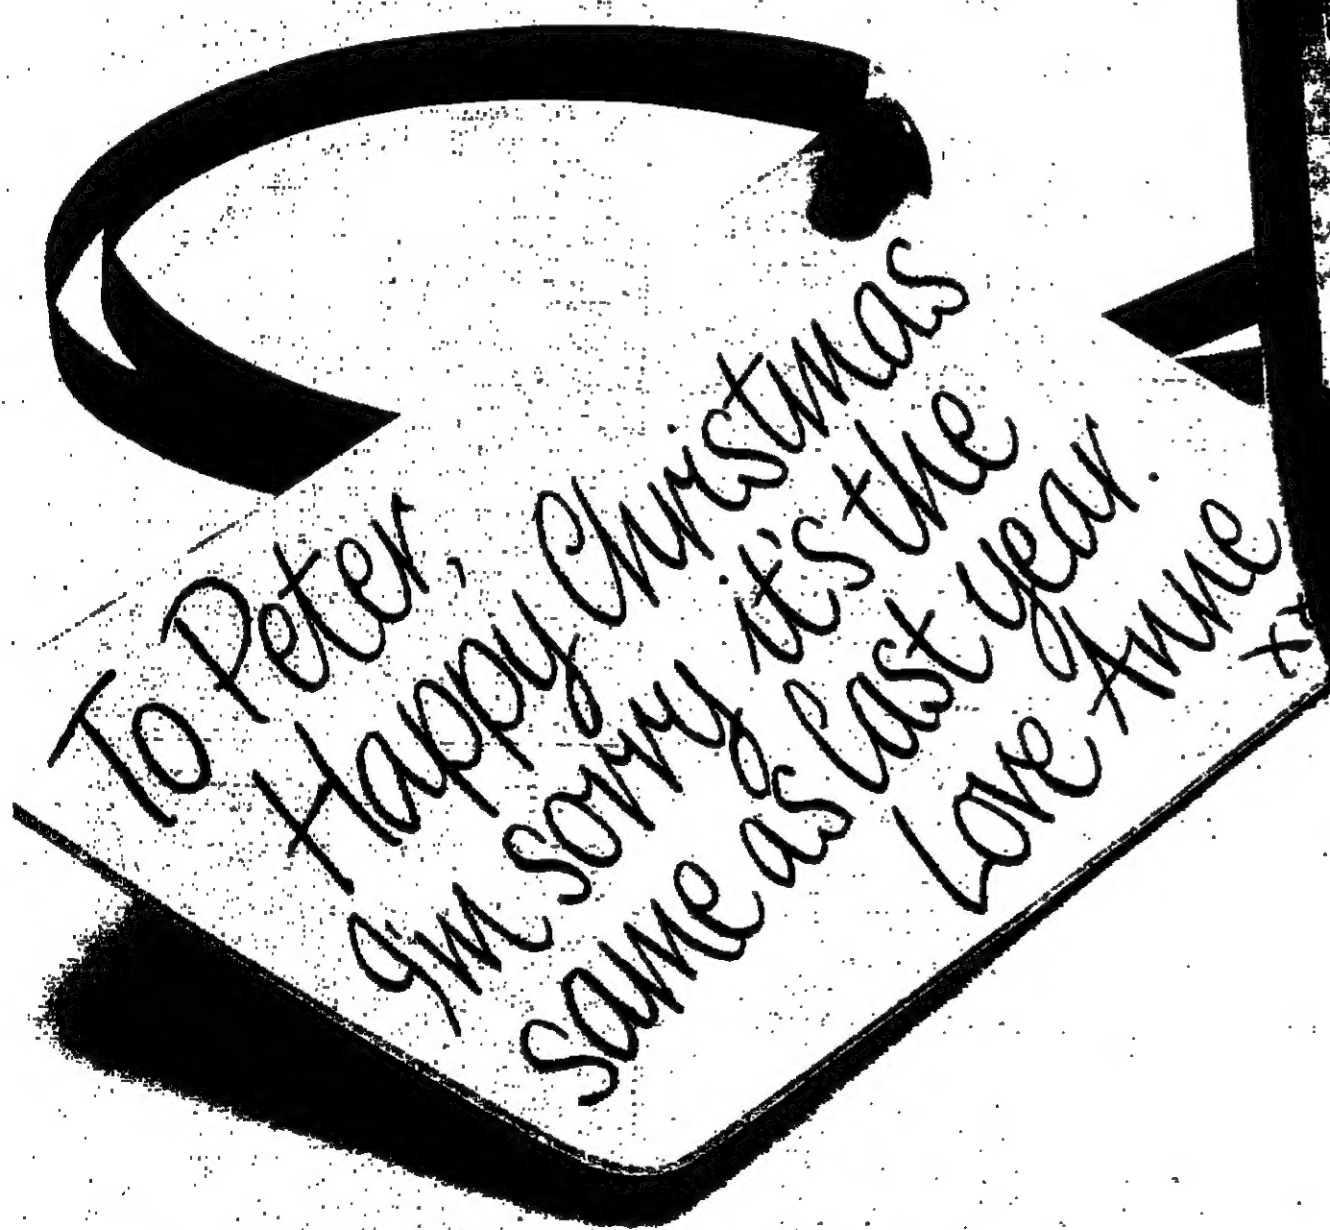 To Peter,
Happy Christmas
I'm sorry it's the
same as last year.
Love Anne
x